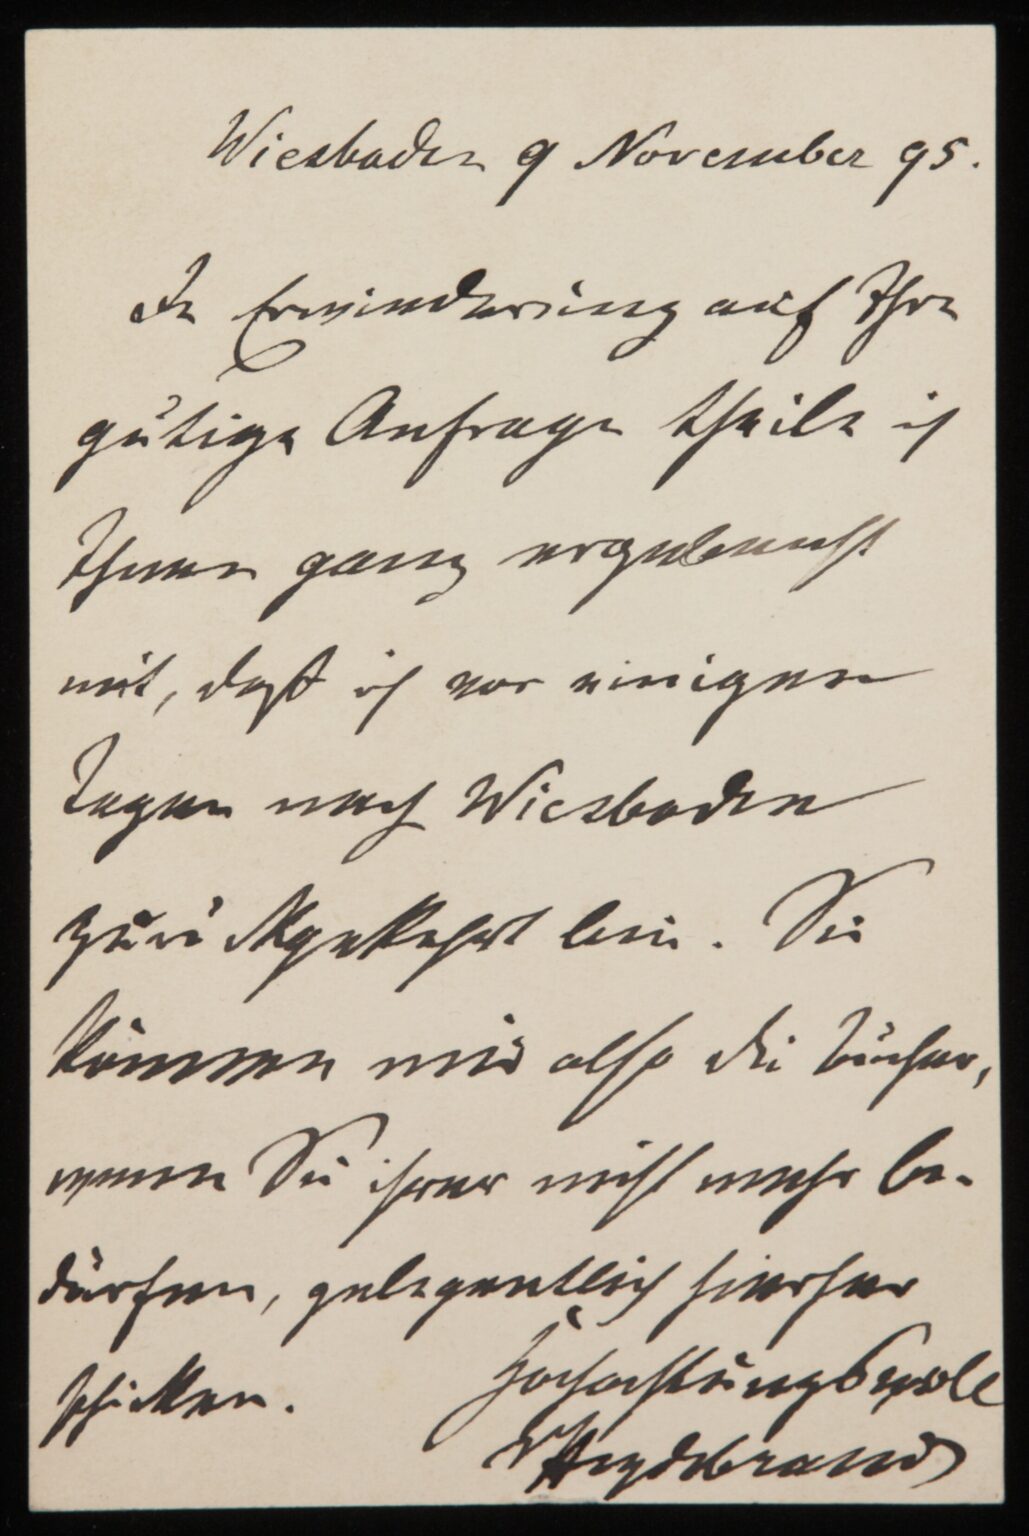 Wiesbaden 9 November 95.
In Erwiederung auf Ihre
gütige Anfrage theile ich
Ihnen ganz ergebenst
mit, daß ich vor einigen
Tagen nach Wiesbaden
zurückgekehrt bin. Sie
können mir also die Bücher,
wenn Sie ihrer nicht mehr be-
dürfen, gelegentlich hierher
schicken. Hochachtungsvoll
vHeydebrand